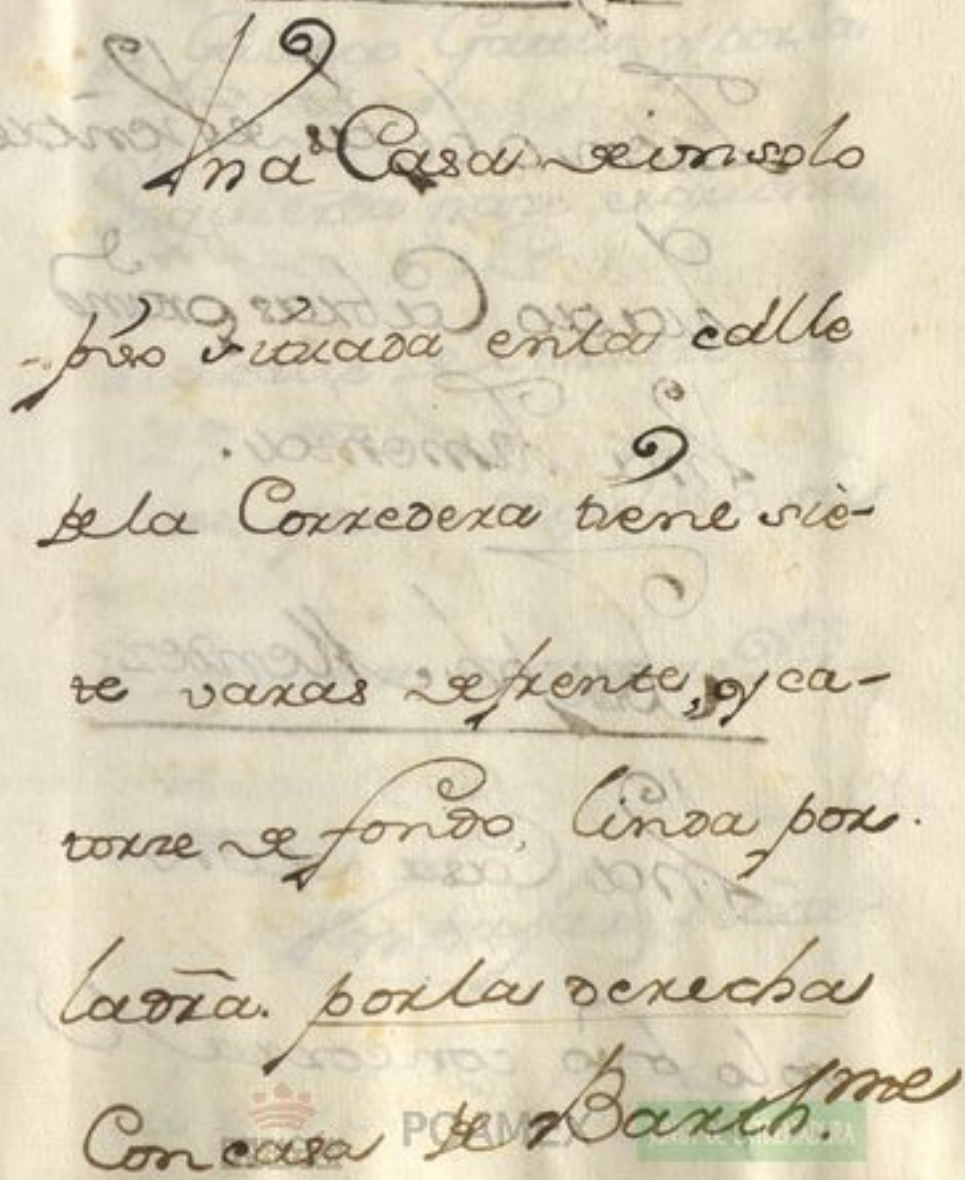 Una Casa de un solo
piso situada en la calle
de la Corredera tiene sie-
te varas de frente, y ca-
torze de fondo, linda por
la dra. por la derecha
Con casa de Barth.me